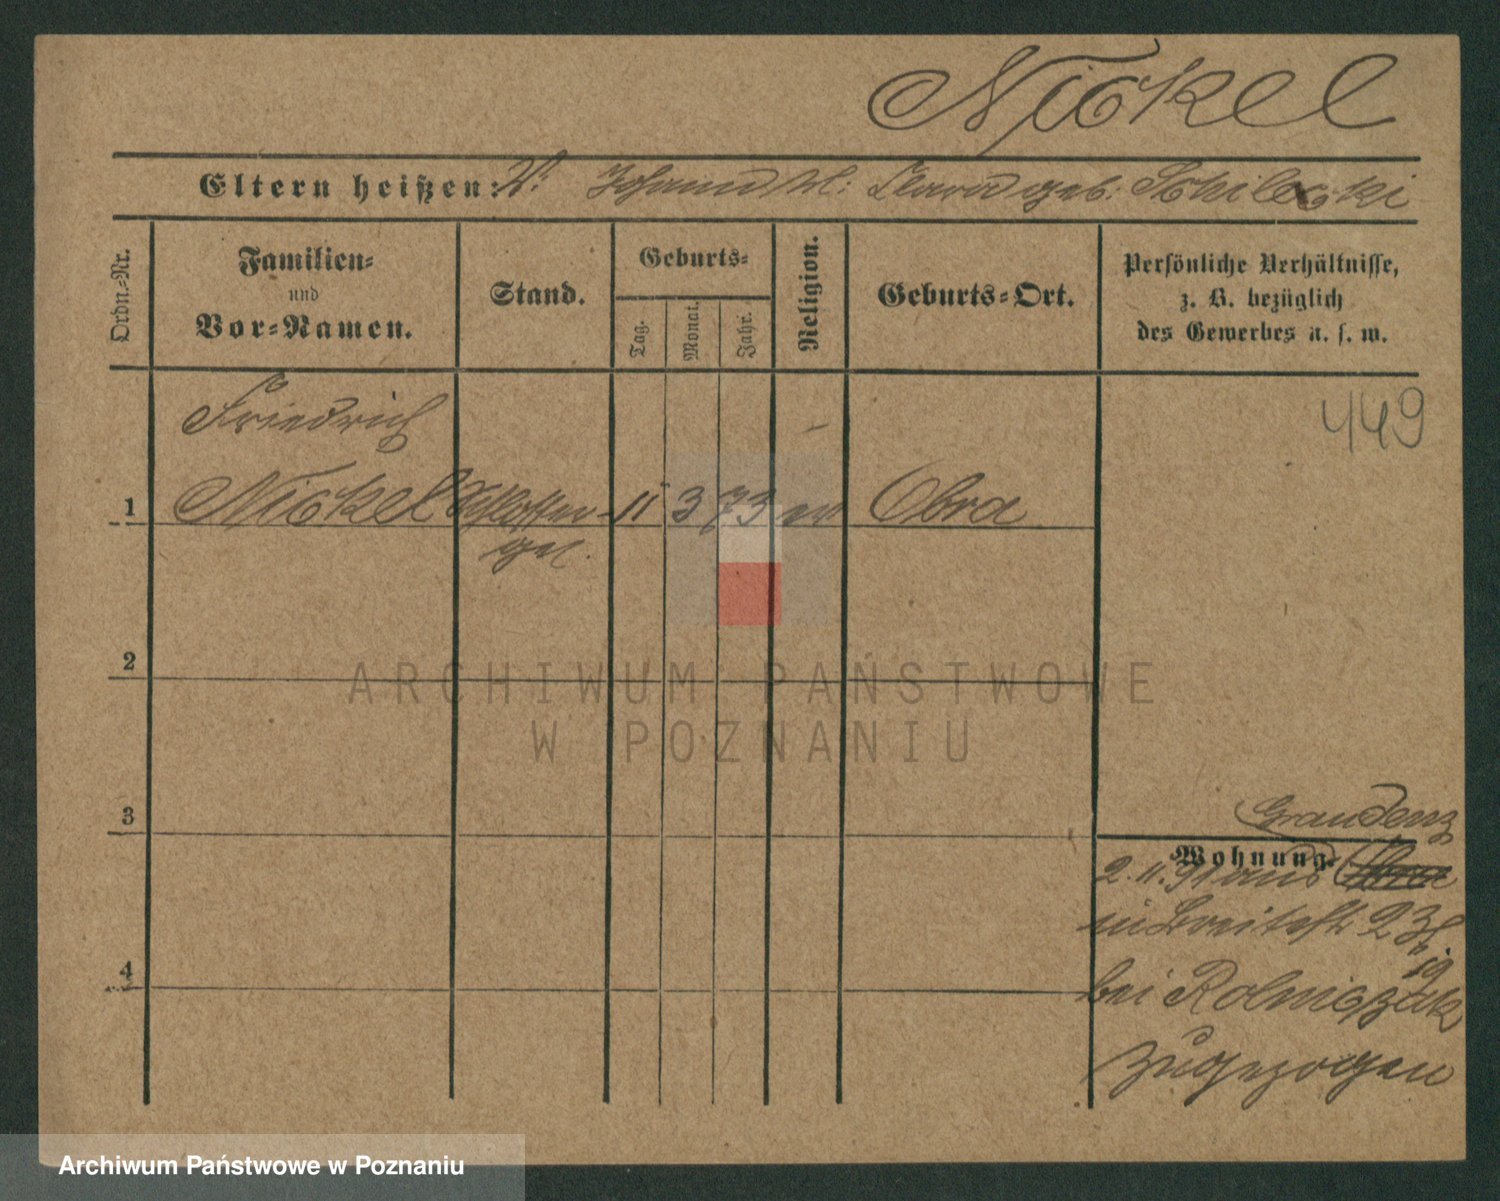 Nickel
Eltern heißen: V. Johann M: Clara geb.
Ordn.-Nr.
Familien-
und
Vor-Namen.
Stand.
Geburts-
Tag.
Monat.
Jahr.
Religion.
Geburts-Ort.
Persönliche Verhältnisse,
z. B. bezüglich
des Gewerbes u. s. w.
449
Friedrich
1 Nickel Schlosser- 11 3 73 ev Obra
ges.
2
3
4
Graudenz
Wohnung.
2. 11. 91 aus Obra
in Breitestr 23
bei
zugezogen
ARCHIWUM PAŃSTWOWE
W POZNANIU
Archiwum Państwowe w Poznaniu